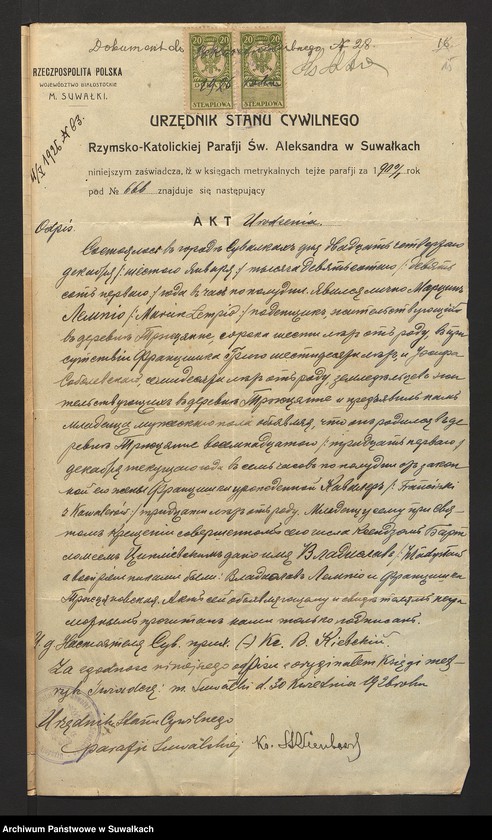 Dokument do № 28.
RZECZPOSPOLITA POLSKA
WOJEWÓDZTWO BIAŁOSTOCKIE
M. SUWAŁKI.
20 20 20 20
STEMPLOWA STEMPLOWA
4/V 1926 № 83.
URZĘDNIK STANU CYWILNEGO
Rzymsko-Katolickiej Parafji Św. Aleksandra w Suwałkach
niniejszym zaświadcza, iż w księgach metrykalnych tejże parafji za 190 rok
pod № 666 znajduje się następujący
AKT Urodzenia.
Odpis.
Состоялось въ городѣ Сувалкахъ дня двадцать четвертаго
декабря /: шестого января :/ тысяча девятьсотаго /: девять
сотъ перваго :/ года въ часъ по полудни. Явился лично Марцинъ
Лемпіо /: Marcin Lempio :/ поденщикъ, жительствующій
въ деревнѣ сорока шести лѣтъ отъ роду, въ при
сутствіи Францишка шестидесяти лѣтъ, и Іосифа
Соболевскаго, семидесяти лѣтъ отъ роду, земледѣльцевъ жи
тельствующихъ въ деревнѣ и предъявилъ намъ
младенца мужескаго пола объявляя, что онъ родился въ де
ревнѣ восемнадцатаго /: тридцать перваго :/
декабря текущаго года въ семь часовъ по полудни отъ закон
ной его жены Францишки урожденной
тридцати лѣтъ отъ роду. Младенцу сему при свя
томъ крещеніи совершенномъ сего числа Ксендзомъ Барт
ломеемъ дано имя Владиславъ /: Władysław
а воспріемниками были: Владиславъ Лемпіо и Францишка
Актъ сей объявляющему и свидѣтелямъ негра
мотнымъ прочитанъ нами только подписанъ.
И. д. Настоятеля Сув. прих. (-) Кс. В. Кіевскій.
Za zgodność niniejszego odpisu z oryginałem Księgi met-
ryk świadczę: m. Suwałki d. 30 Kwietnia 1926 roku
Urzędnik Stanu Cywilnego
parafji Suwalskiej Ks.
Archiwum Państwowe w Suwałkach